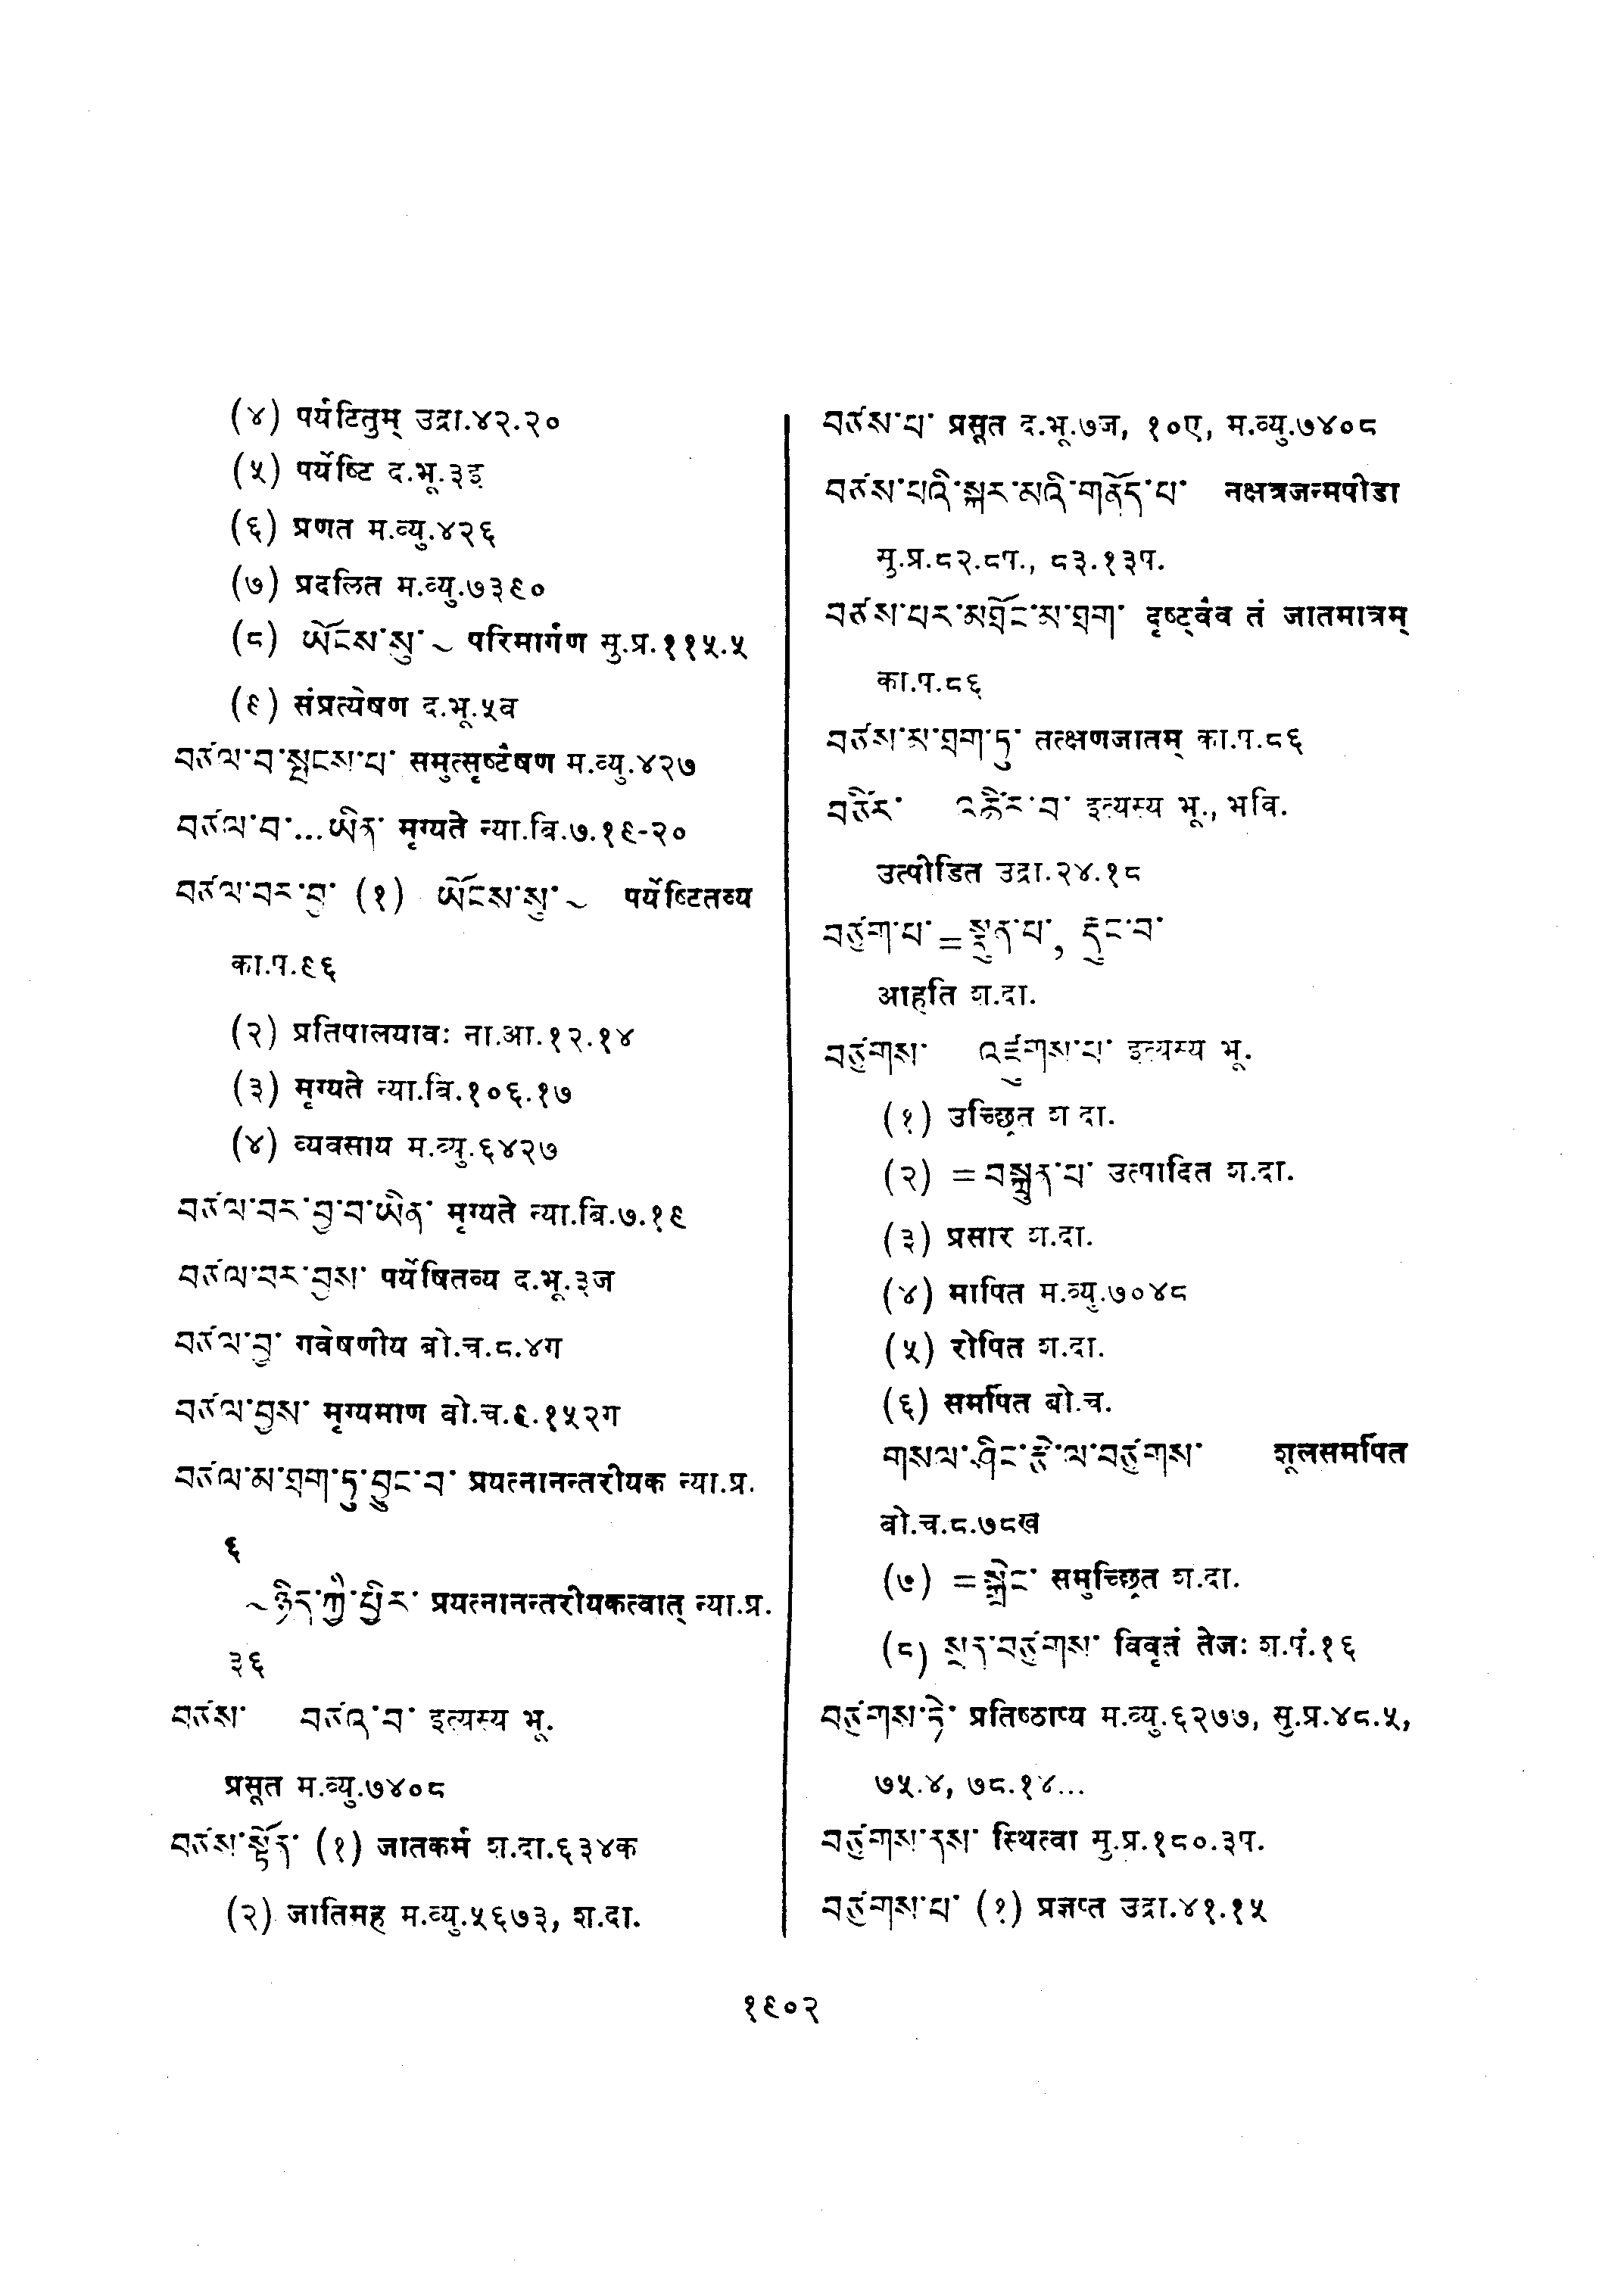 (४) पर्यटितुम् उद्रा.४२.२०
(५) पर्येष्टि द.भू.३इ
(६) प्रणत म.व्यु.४२६
(७) प्रदलित म.व्यु.७३९०
(८) ཡོངས་སུ་ ~ परिमार्गण मु.प्र.११५.५
(९) संप्रत्येषण द.भू.५व
བཙལ་བ་སྤངས་པ་ समुत्सृष्टैषण म.व्यु.४२७
བཙལ་བ་...ཡིན་ मृग्यते न्या.बि.७.१९-२०
བཙལ་བར་བྱ་ (१) ཡོངས་སུ་ ~ पर्येष्टितव्य
का.प.९६
(२) प्रतिपालयावः ना.आ.१२.१४
(३) मृग्यते न्या.बि.१०६.१७
(४) व्यवसाय म.व्यु.६४२७
བཙལ་བར་བྱ་བ་ཡིན་ मृग्यते न्या.बि.७.१९
བཙལ་བར་བྱས་ पर्येषितव्य द.भू.३ज
བཙལ་བྱ་ गवेषणीय बो.च.८.४ग
བཙལ་བྱས་ मृग्यमाण बो.च.९.१५२ग
བཙལ་མ་ཐག་ཏུ་བྱུང་བ་ प्रयत्नानन्तरीयक न्या.प्र.
६
~ཉིད་ཀྱི་ཕྱིར་ प्रयत्नानन्तरीयकत्वात् न्या.प्र.
३६
བཙས་ བཙའ་བ་ इत्यस्य भू.
प्रसूत म.व्यु.७४०८
བཙས་སྟོན་ (१) जातकर्म श.दा.६३४क
(२) जातिमह म.व्यु.५६७३, श.दा.
བཙས་པ་ प्रसूत द.भू.७ज, १०ए, म.व्यु.७४०८
བཙས་པའི་སྐར་མའི་གནོད་པ་ नक्षत्रजन्मपीडा
मु.प्र.८२.८प., ८३.१३प.
བཙས་པར་མཐོང་མ་ཐག་ दृष्ट्वैव तं जातमात्रम्
का.प.८६
བཙས་མ་ཐག་ཏུ་ तत्क्षणजातम् का.प.८६
བཙིར་ འཚིར་བ་ इत्यस्य भू., भवि.
उत्पीडित उद्रा.२४.१८
བཙུག་པ་ = སྣུན་པ་, རྡུང་བ་
आहति श.दा.
བཙུགས་ འཛུགས་པ་ इत्यस्य भू.
(१) उच्छ्रित श दा.
(२) = བསྐྲུན་པ་ उत्पादित श.दा.
(३) प्रसार श.दा.
(४) मापित म.व्यु.७०४८
(५) रोपित श.दा.
(६) समर्पित बो.च.
གསལ་ཤིང་རྩེ་ལ་བཙུགས་ शूलसमर्पित
बो.च.८.७८ख
(७) = སྒྲེང་ समुच्छ्रित श.दा.
(८) སྔར་བཙུགས་ विवृतं तेजः श.पं.१६
བཙུགས་ཏེ་ प्रतिष्ठाप्य म.व्यु.६२७७, सु.प्र.४८.५,
७५.४, ७८.१४...
བཙུགས་ནས་ स्थित्वा मु.प्र.१८०.३प.
བཙུགས་པ་ (१) प्रज्ञप्त उद्रा.४१.१५
१९०२